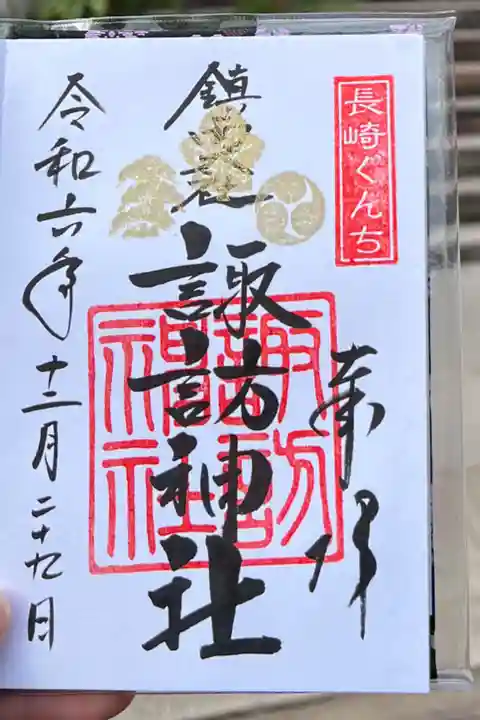 長崎ぐんち
奉拝
鎮西大社
諏訪神社
諏訪
神社
令和六年十二月二十九日